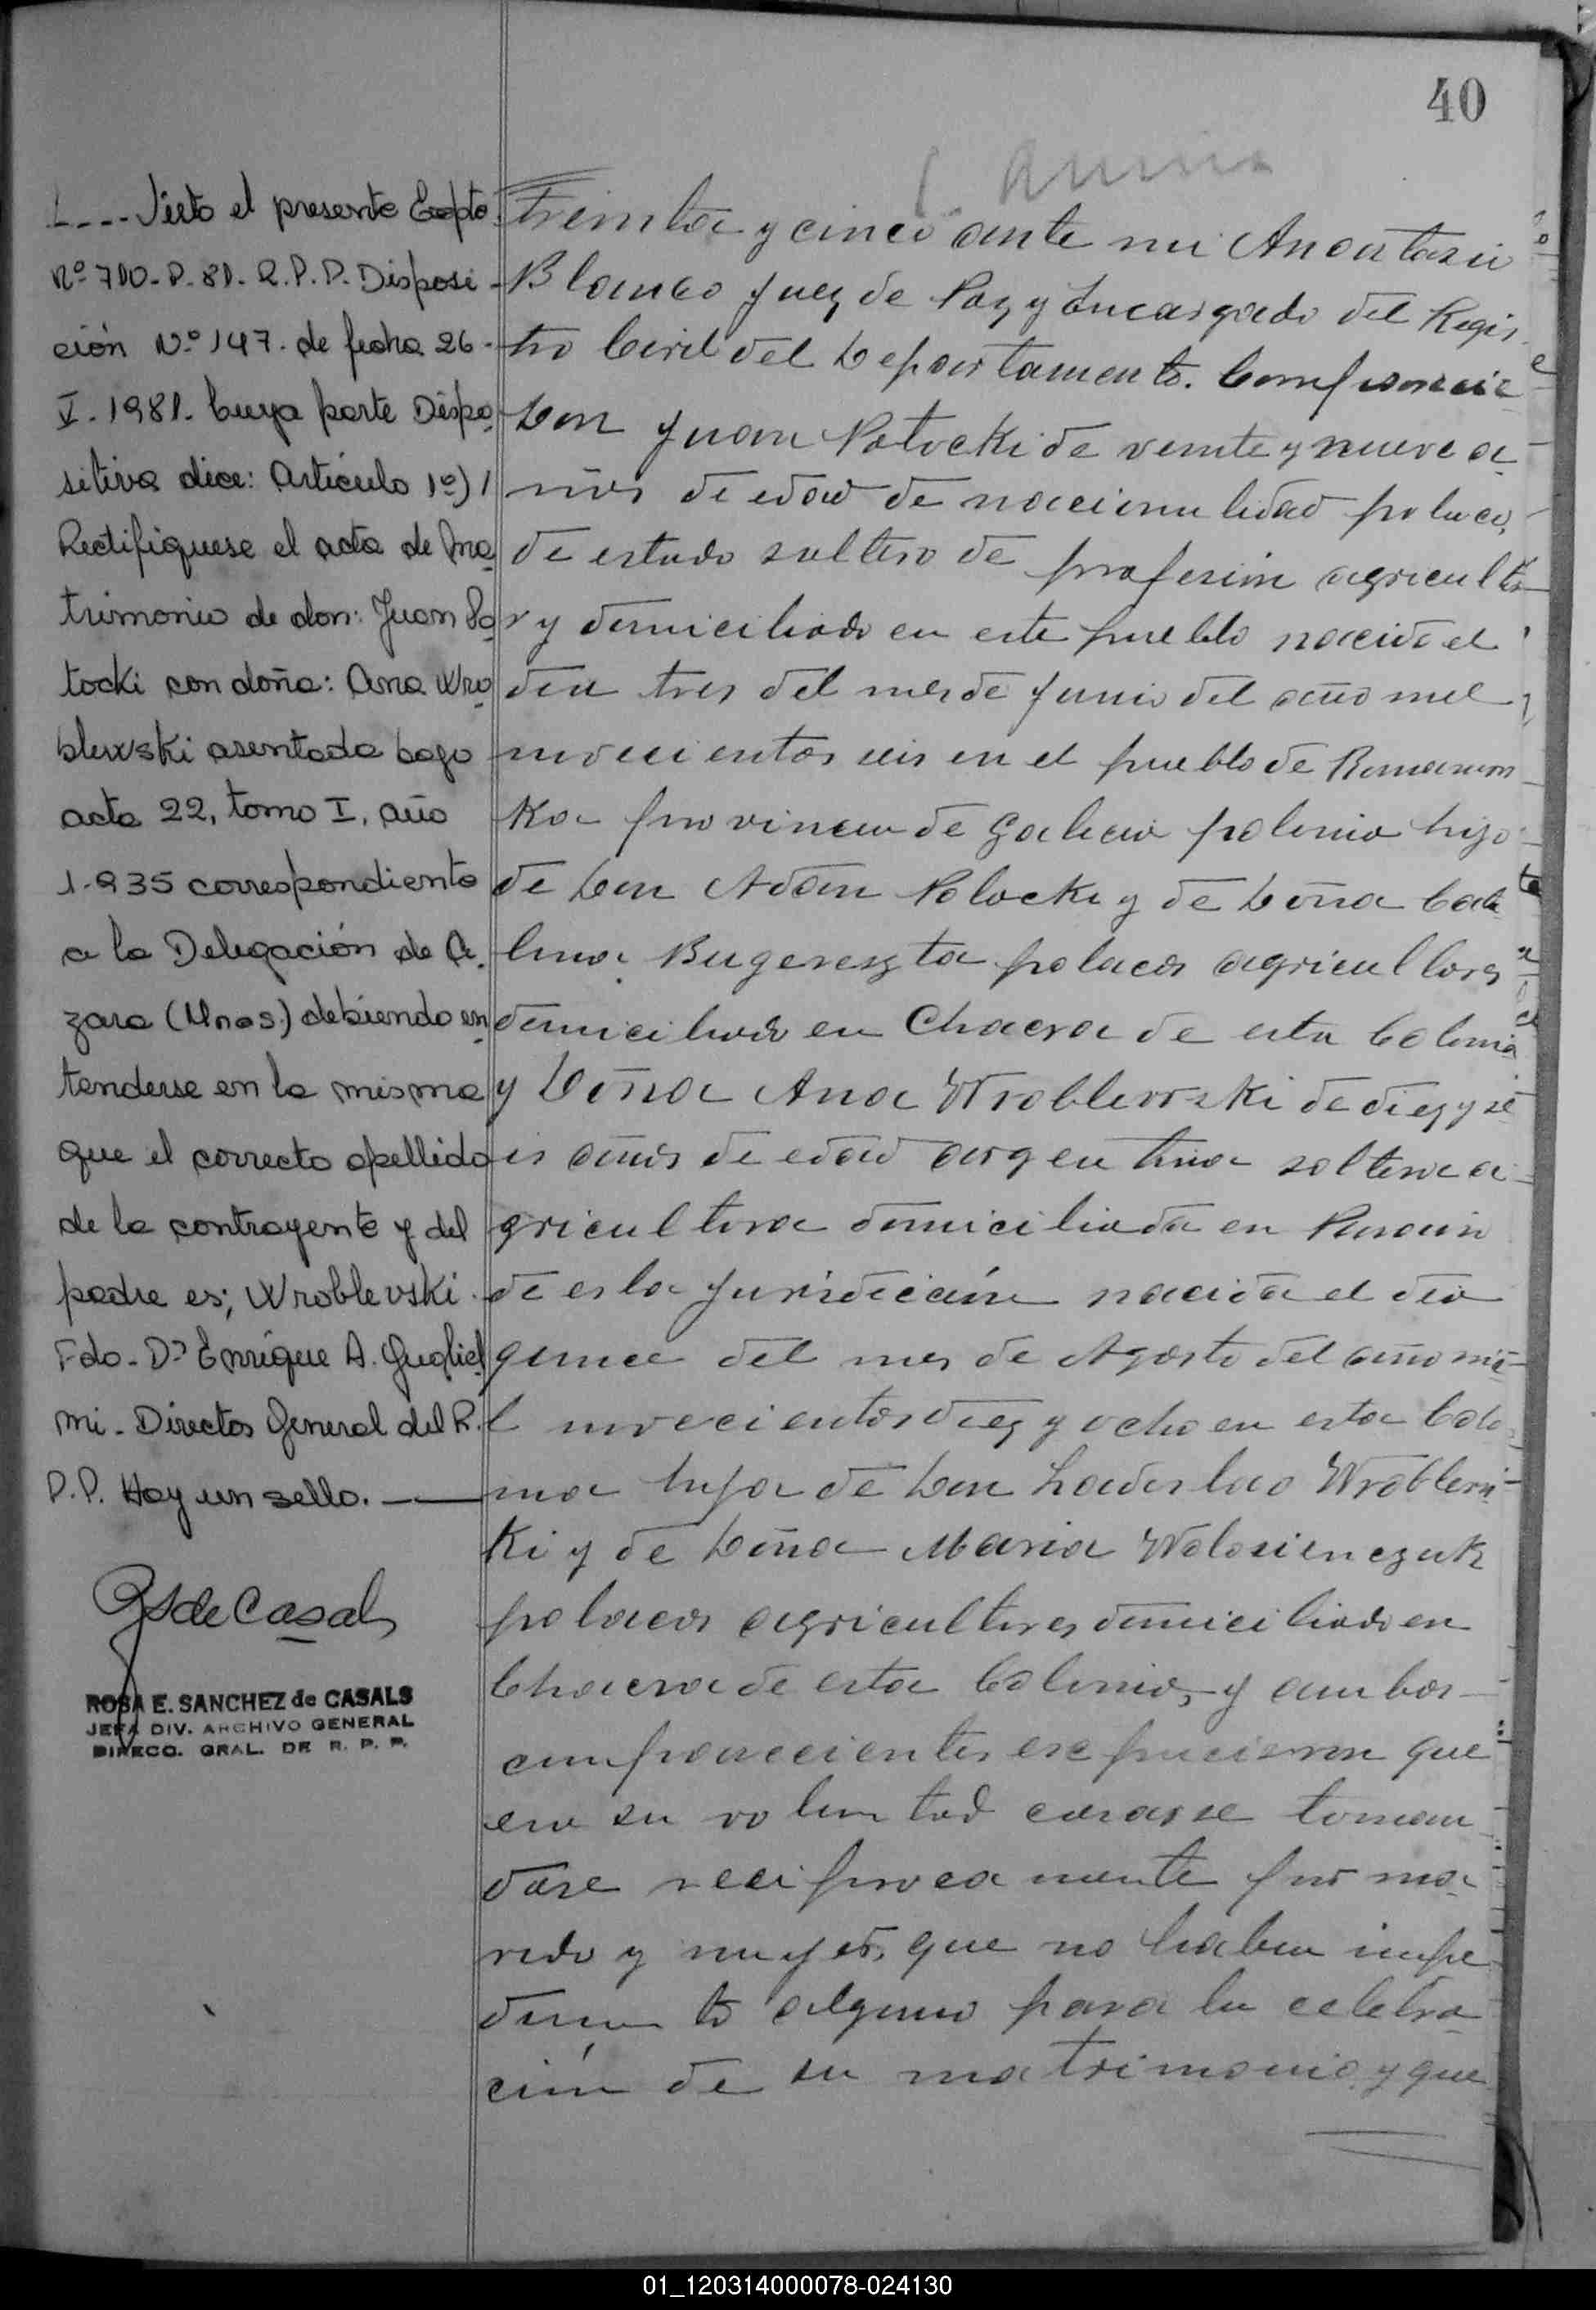 40
Visto el presente Expte.
Nº 710-P-81-R.P.P. Disposi-
ción Nº 147. de fecha 26-
V-1981. Cuya parte Dispo
sitiva dice: Artículo 1º) /
Rectifiquese el acta de Ma
trimonio de don: Juan Po
tocki con doña: Ana Wro
blewski asentada bajo
acta 22, tomo I, año
1.935 correspondiente
a la Delegación de A.
zara (Mnes.) debiendo en
tenderse en la misma
que el correcto apellido
de la contrayente y del
padre es; Wroblevski.
Fdo. Dr Enrique A. Gugliel
mi. Director General del R.
P.P. Hay un sello.
RS de Casals
ROSA E. SANCHEZ de CASALS
JEFA DIV. ARCHIVO GENERAL
DIRECC. GRAL. DE R. P. P.
Treinta y cinco ante mi Anastasio
Blanco Juez de Paz y Encargado del Regis
tro Civil del Departamento. Comparecie
Don Juan Potocki de veinte y nueve a
ños de edad de nacionalidad polaco,
de estado soltero de profesion agriculto
r y domiciliado en este pueblo nacido el
dia tres del mes de Junio del año mil
novecientos seis en el pueblo de
ka provincia de Galicia polonia hijo
de Don Adán Polocki y de Doña Cata
lina polacos agricultores
domiciliado en Chacra de esta Colonia
y Doña Ana Wroblewski de diez y se
is años de edad argentina soltera a
gricultora domiciliada en
de esta Jurisdicción nacida el dia
quince del mes de Agosto del año mi
l novecientos diez y ocho en esta Colo
nia hija de Don Ladislao Wroblews
ki y de Doña Maria Wolosienczuk
polacos agricultores domiciliado en
Chacra de esta Colonia, y ambos
comparecientes expucieron que
era su voluntad casarse toman
dose reciprocamente por ma
rido y mujer, que no habia impe
dimento alguno para la celebra
ción de su matrimonio y que
01_120314000078-024130